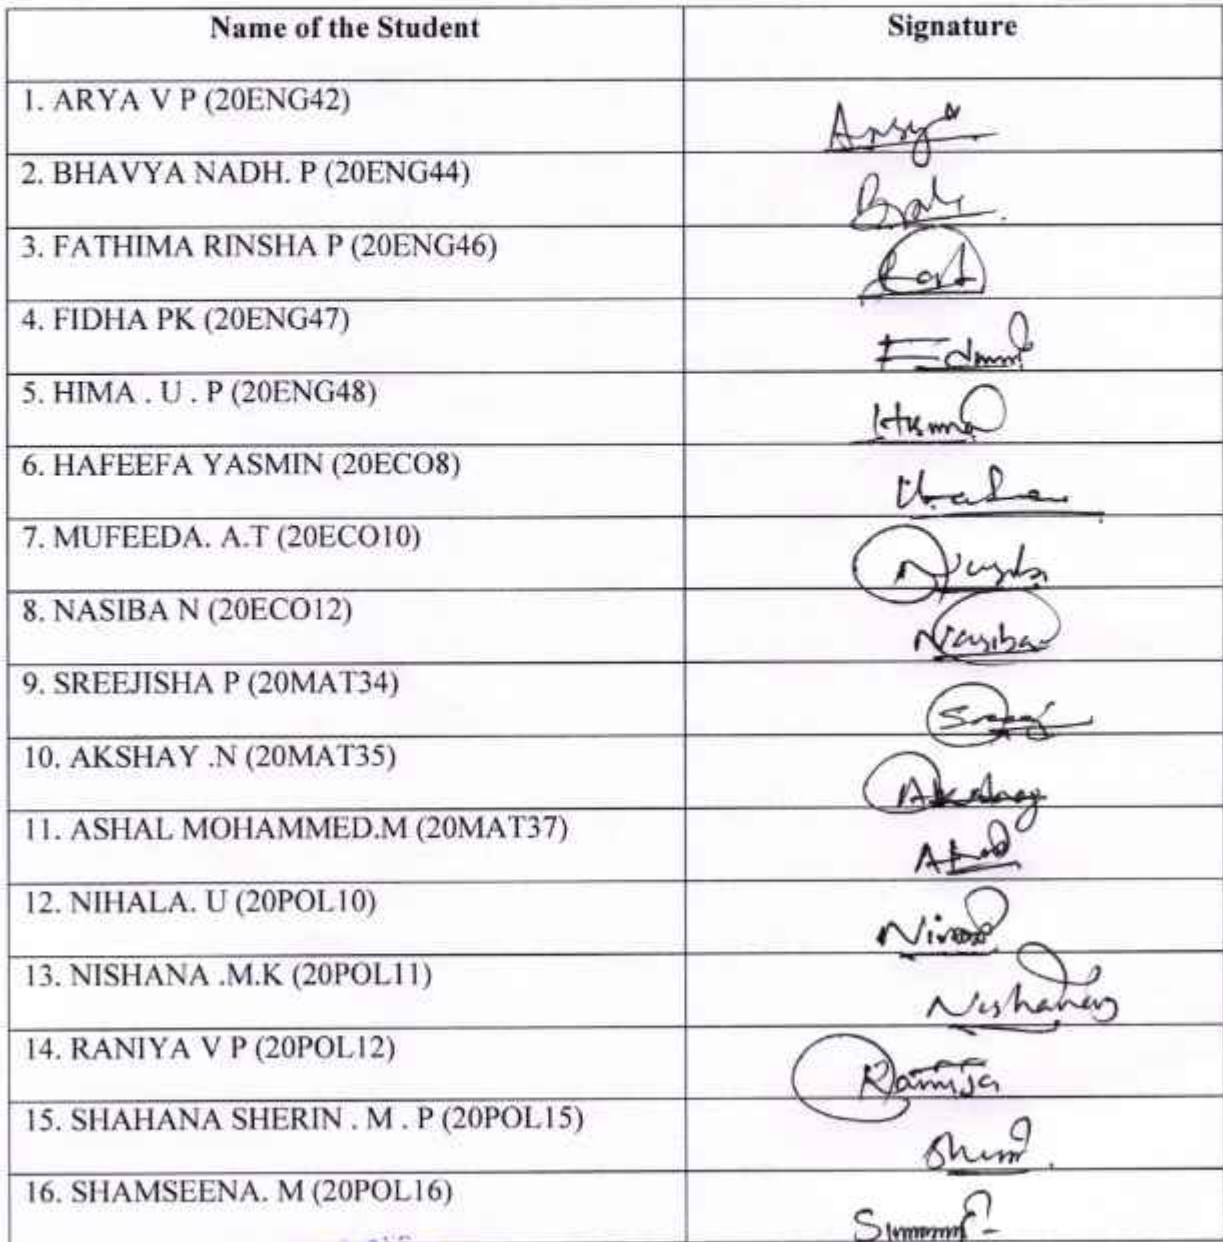 Name of the Student Signature
1. ARYA V P (20ENG42) Arya
2. BHAVYA NADH. P (20ENG44)
3. FATHIMA RINSHA P (20ENG46)
4. FIDHA PK (20ENG47)
5. HIMA . U . P (20ENG48)
6. HAFEEFA YASMIN (20ECO8)
7. MUFEEDA. A.T (20ECO10)
8. NASIBA N (20ECO12) Nasiba
9. SREEJISHA P (20MAT34)
10. AKSHAY .N (20MAT35) Akshay
11. ASHAL MOHAMMED.M (20MAT37)
12. NIHALA. U (20POL10)
13. NISHANA .M.K (20POL11)
14. RANIYA V P (20POL12)
15. SHAHANA SHERIN . M . P (20POL15)
16. SHAMSEENA. M (20POL16)